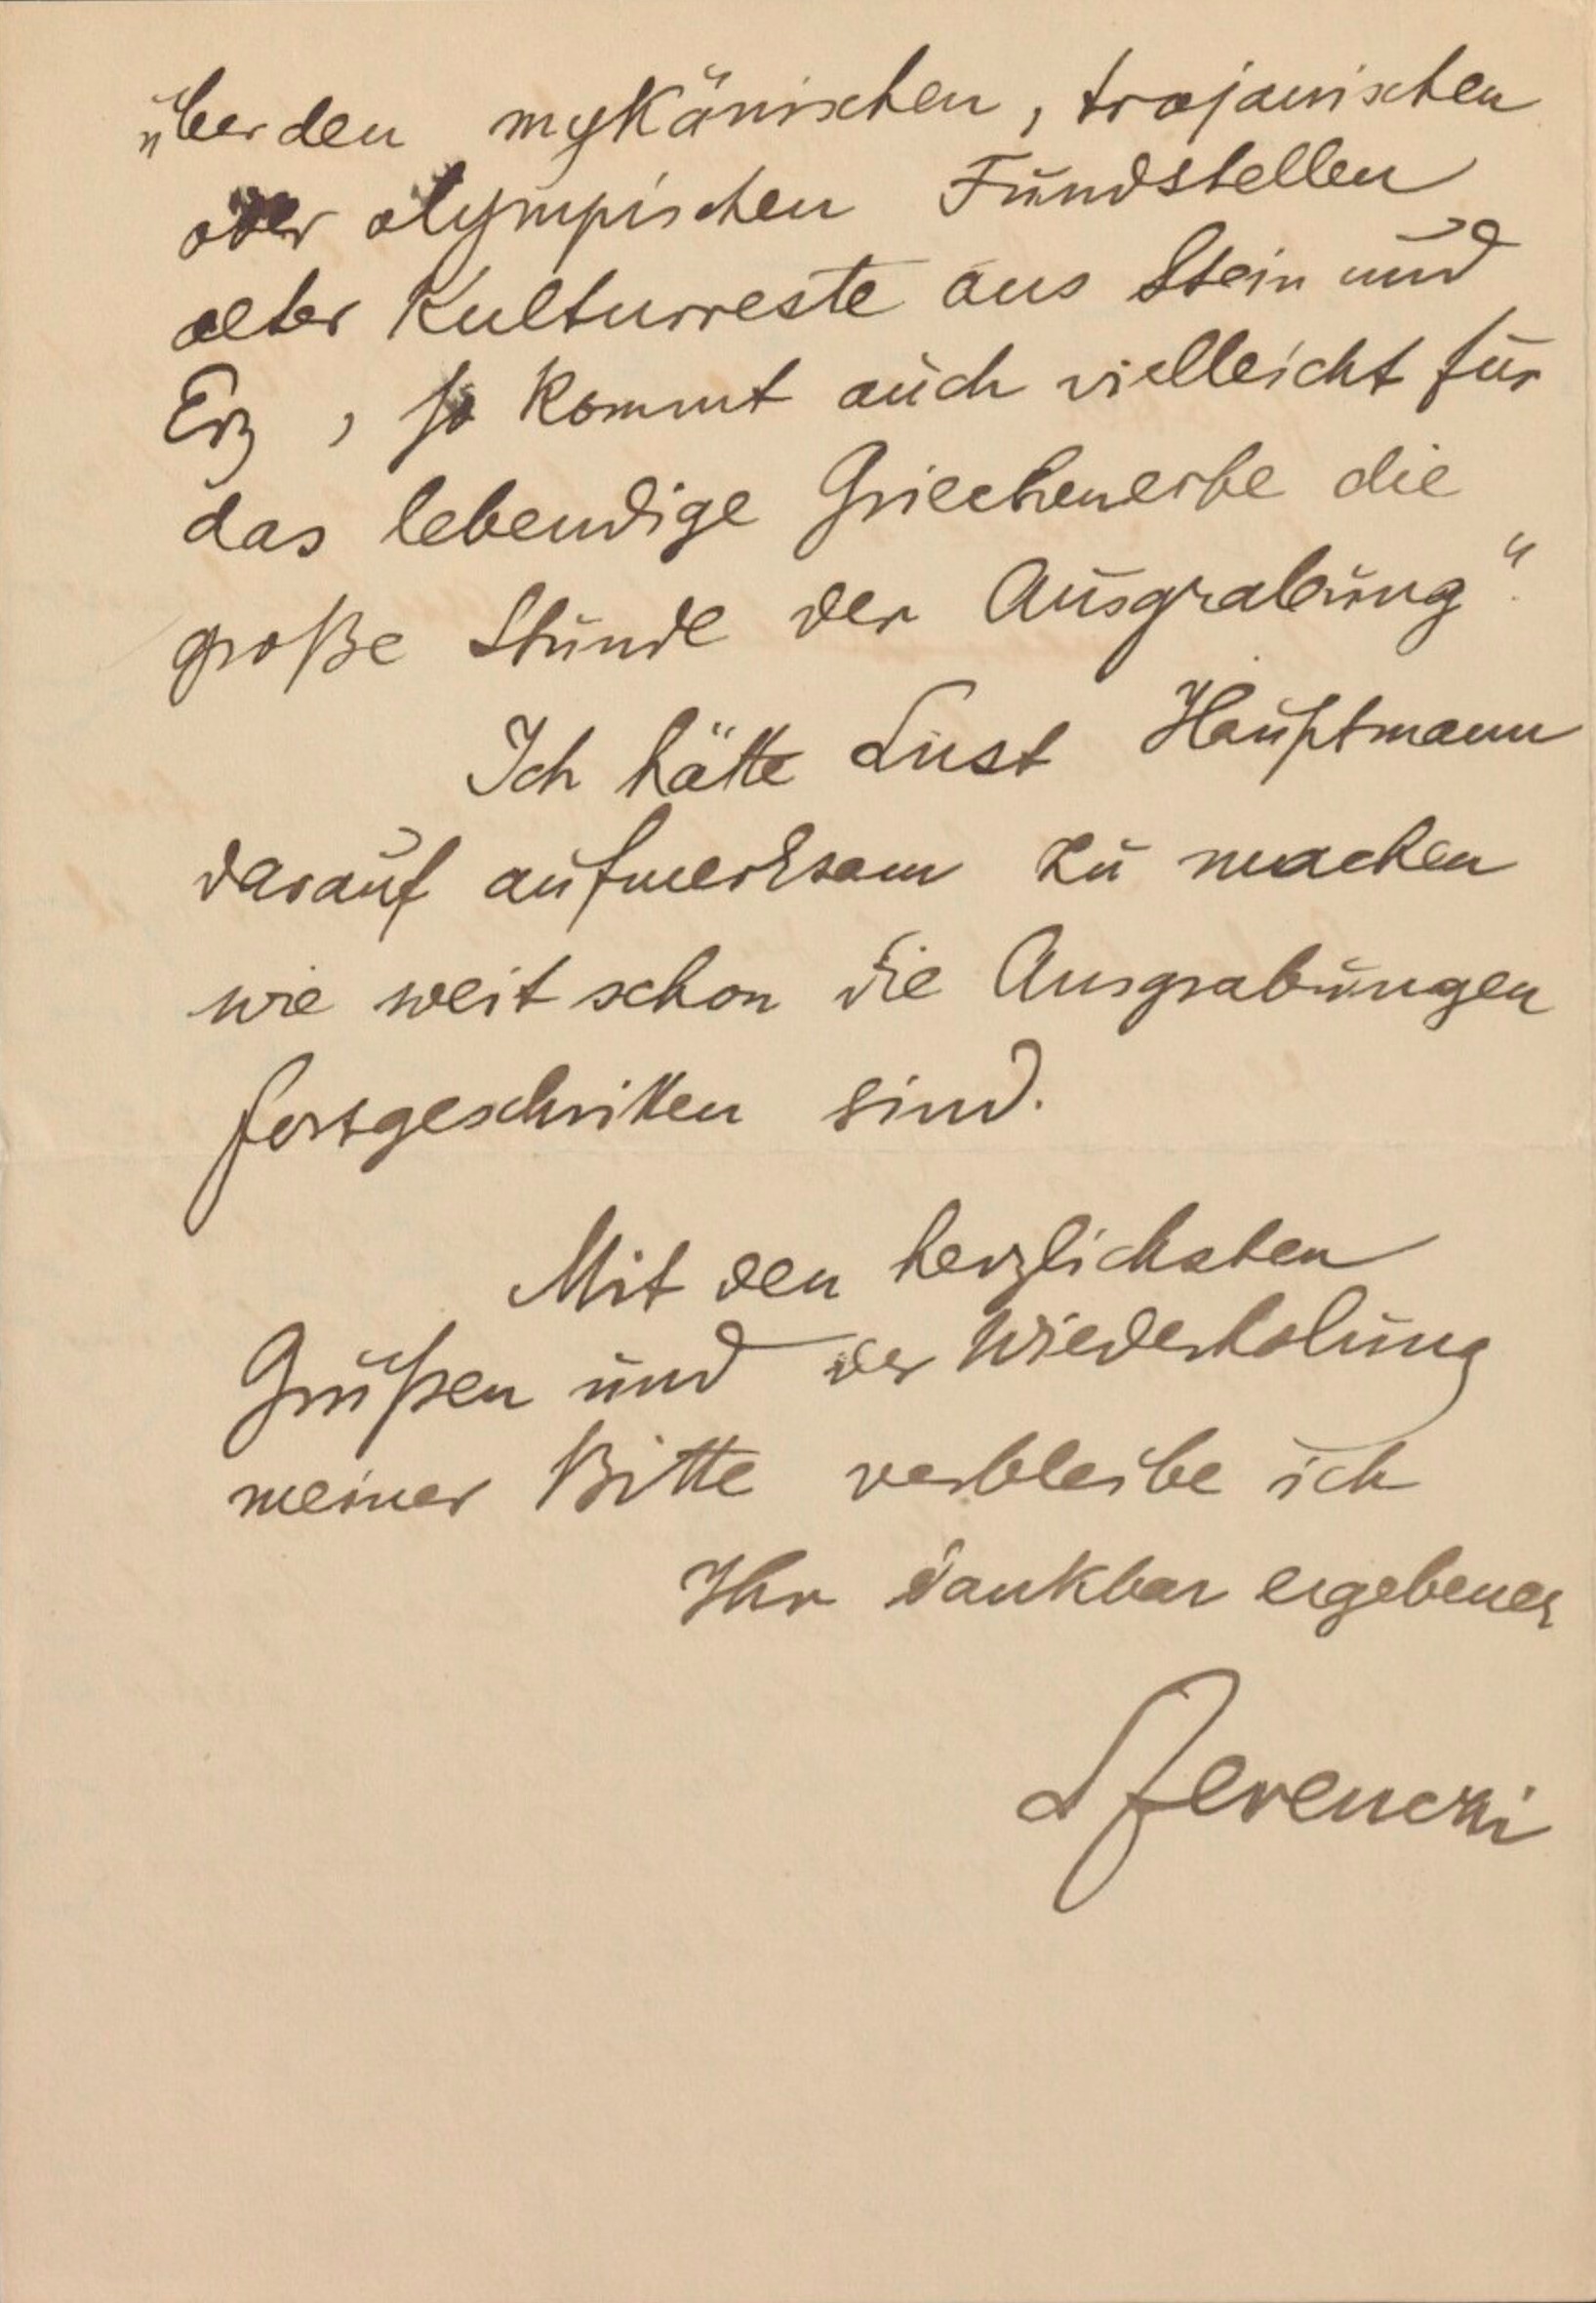 „über den mykänischen, trojanischen
oder olympischen Fundstellen
alter Kulturreste aus Stein und
Erz, so kommt auch vielleicht für
das lebendige Griechenerbe die
große Stunde der Ausgrabung“.
Ich hätte Lust Hauptmann
darauf aufmerksam zu machen
wie weit schon die Ausgrabungen
fortgeschritten sind.
Mit den herzlichsten
Grüßen und der Wiederholung
meiner Bitte verbleibe ich
Ihr dankbar ergebener
Ferenczi